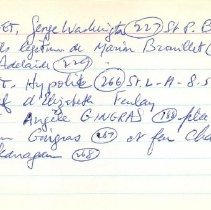 ET, Serge Washington (227) St P. B
ls légitime de Marion Brouillet (
Adelaide (227)
ET. Hypolite (266) St. L-A-8-5
f d'Elizabeth Finlay
Angèle GINGRAS (188) pla
n Gingras (267) et feu Cha
kanagan (268)